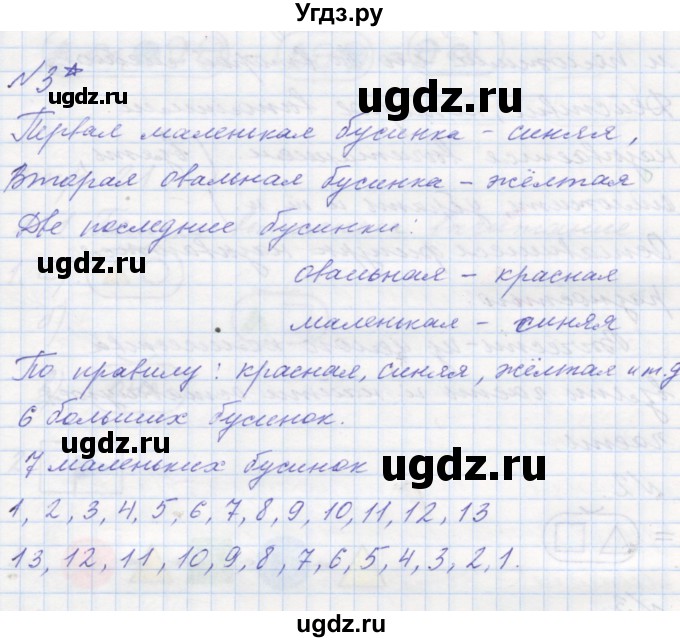 Угдз.ру
№3*
Первая маленькая бусинка - синяя,
Вторая овальная бусинка - жёлтая
Две последние бусинки:
овальная - красная
маленькая - синяя
По правилу: красная, синяя, жёлтая и т.д
6 больших бусинок.
7 маленьких бусинок
1, 2, 3, 4, 5, 6, 7, 8, 9, 10, 11, 12, 13
13, 12, 11, 10, 9, 8, 7, 6, 5, 4, 3, 2, 1.
ugdz.ru
ugdz.ru
ugdz.ru
ugdz.ru
ugdz.ru
ugdz.ru
ugdz.ru
ugdz.ru